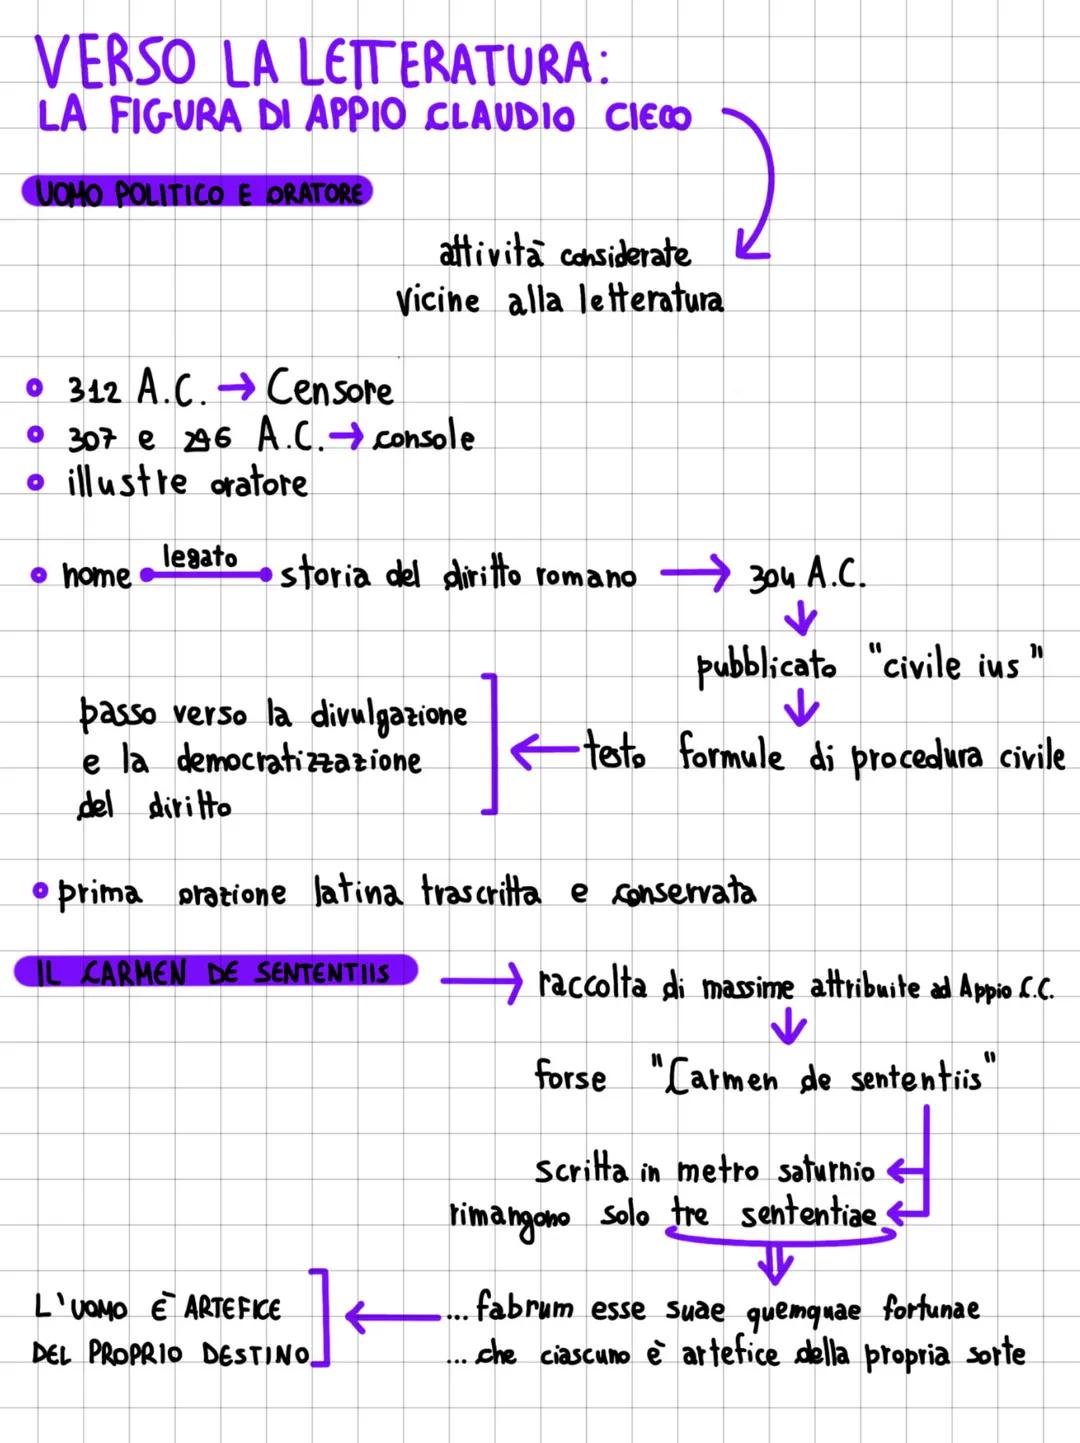 VERSO LA LETTERATURA:
LA FIGURA DI APPIO CLAUDIO CIECO
UOMO POLITICO E ORATORE
attività considerate
vicine alla letteratura
312 A.C. → Censore
307 e 296 A.C. → console
illustre oratore
nome legato storia del diritto romano → 304 A.C.
pubblicato "civile ius"
passo verso la divulgazione
e la democratizzazione
del diritto
← testo formule di procedura civile
prima orazione latina trascritta e conservata
IL CARMEN DE SENTENTIIS → raccolta di massime attribuite ad Appio C.C.
forse "Carmen de sententiis"
scritta in metro saturnio
rimangono solo tre sententiae
L'UOMO È ARTEFICE
DEL PROPRIO DESTINO
... fabrum esse suae quemquae fortunae
... che ciascuno è artefice della propria sorte